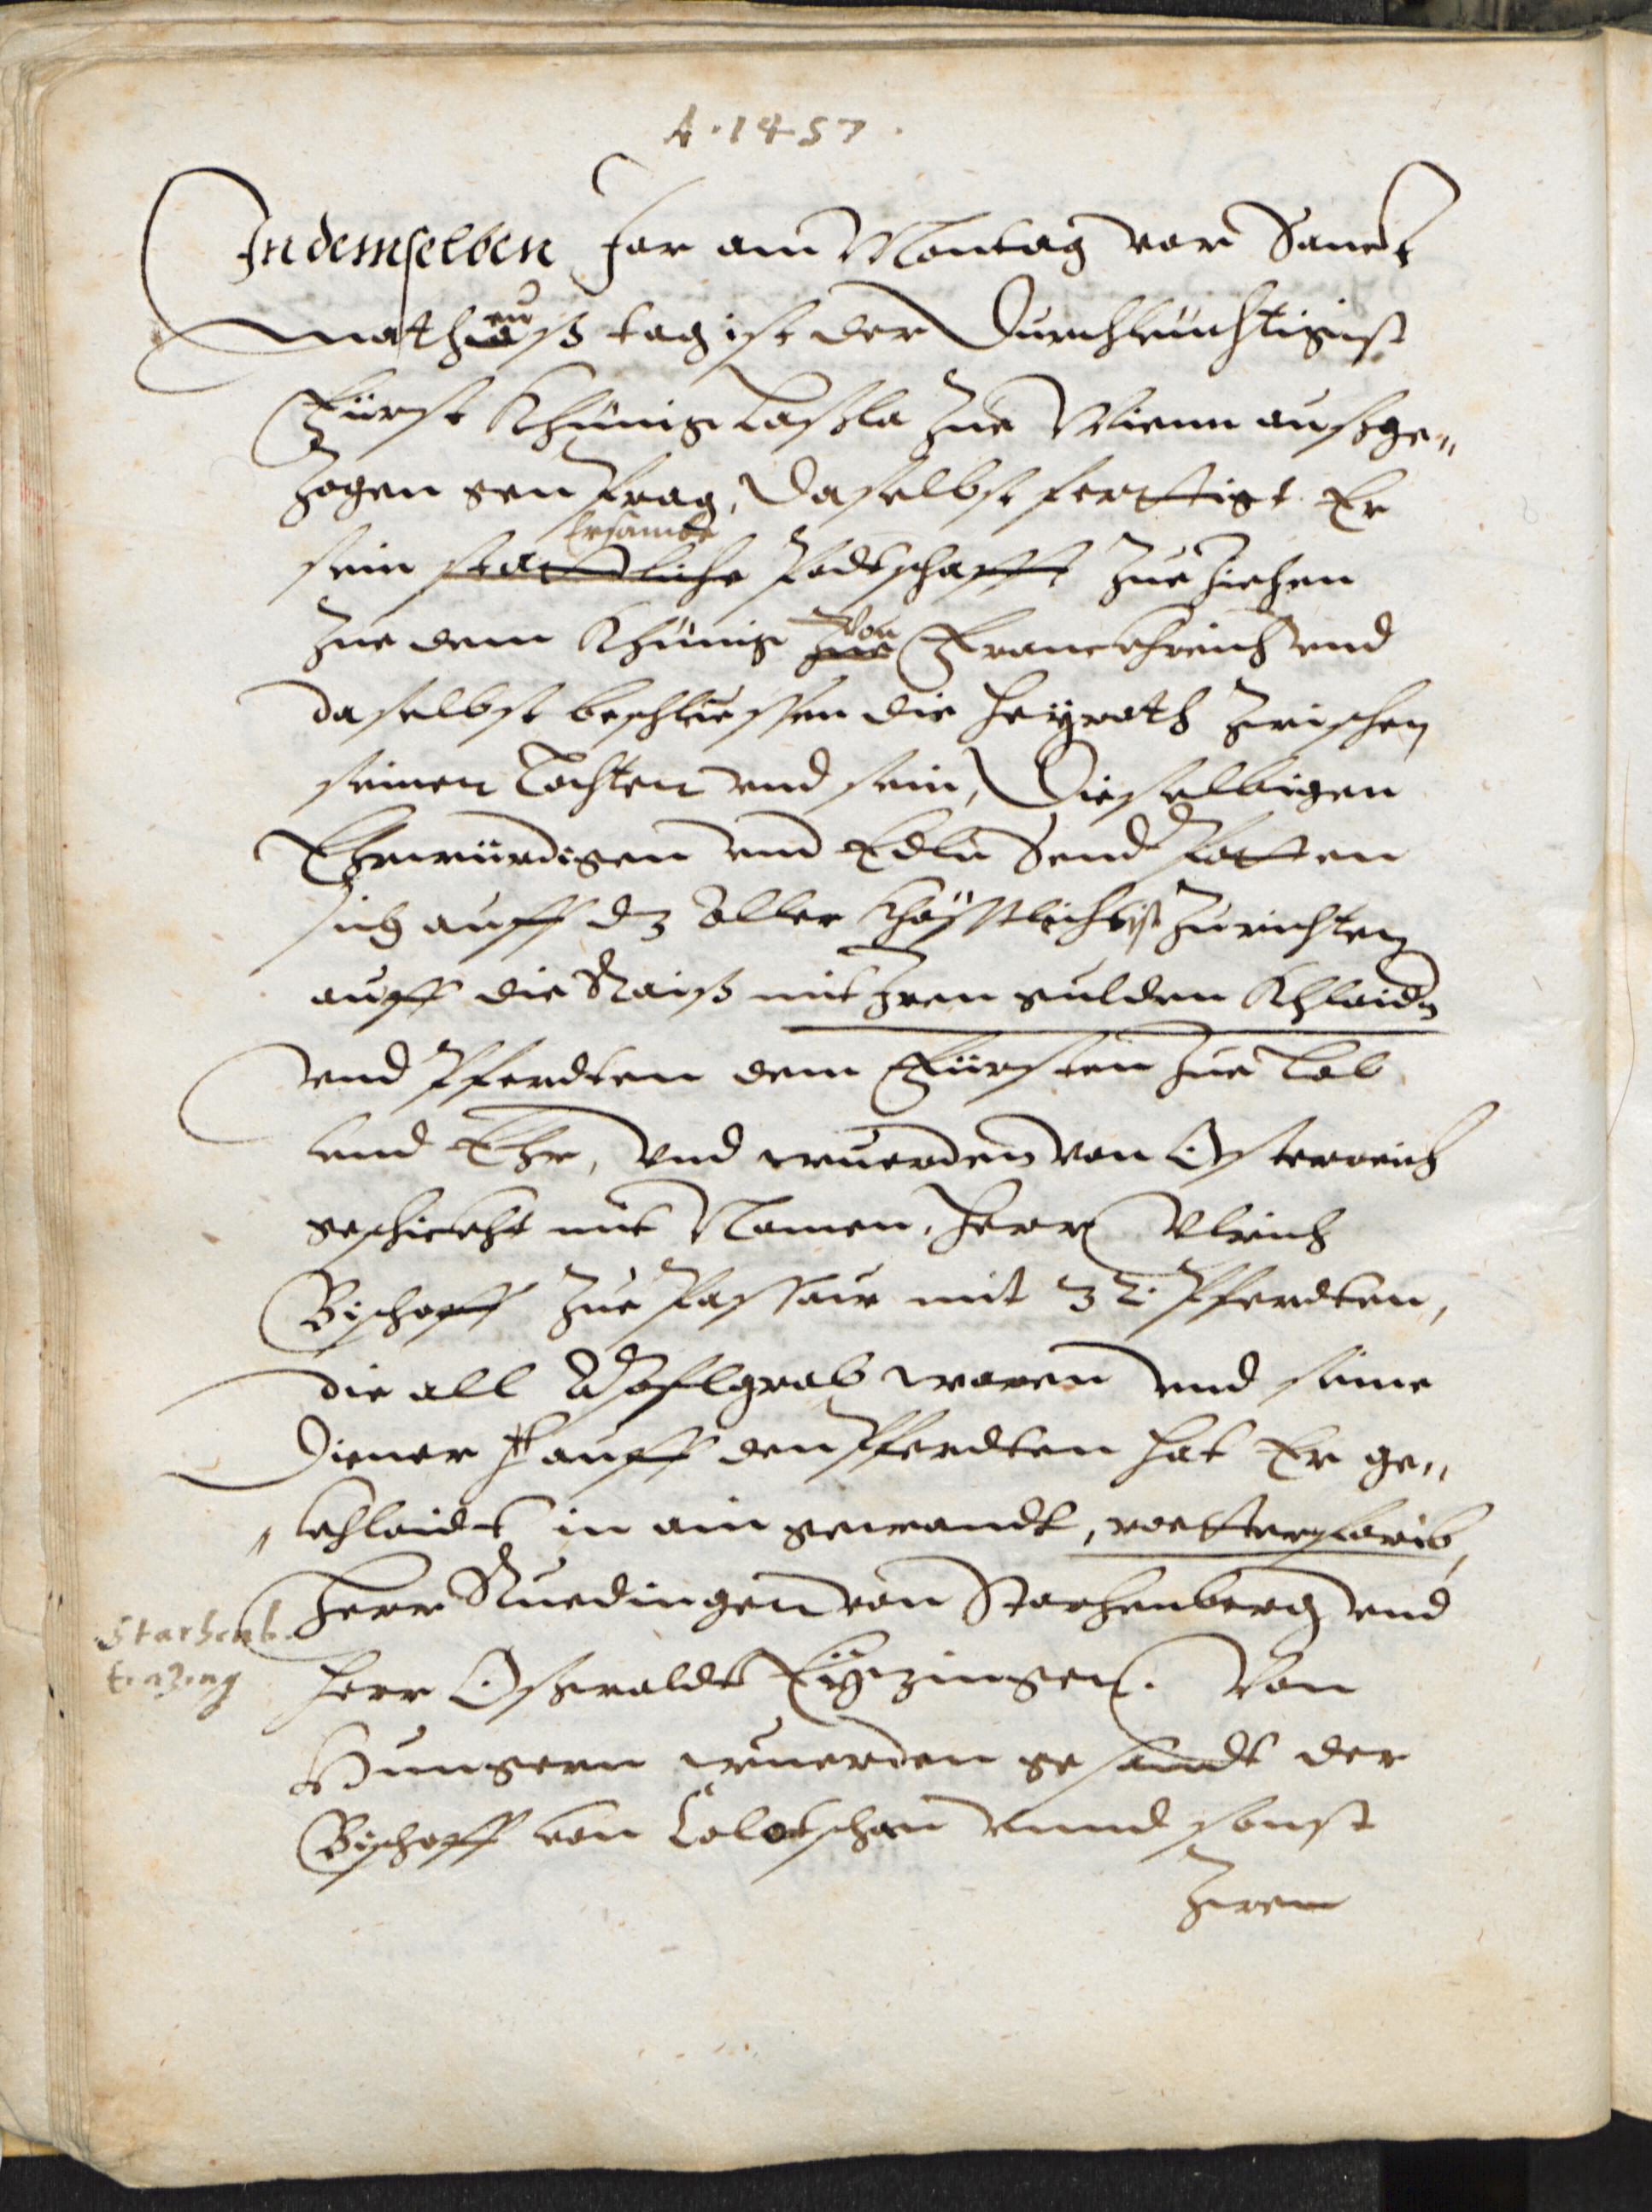 A · 1457 ·
In demselben Jar am Montag vor Sanct
Matheuß tag ist der Durchleuchtigist
Fürst Khünig Laßla zue Wienn außge„
zogen gen Prag, Daselbst ferttigt Er
Ersambe
sein stattliche Podtschafft zue ziehen
zue dem Khünig von Franckhreich vnd
daselbst beschliessen die Heyrath zwischen
seiner Tochter vnd sein, Dieselbigen
Ehrwürdigen vnd Edln Send Potten
sich auff dz Aller Khösstlichist zurichten
auff die Raiß mit Iren gulden Khlaidn
vnd Pferdten dem Fürsten zue Lob
vnd Ehr, Vnd wuerden von Osterreich
geschickht mit Namen, Herr Vlrich
Bischoff zue Passaw mit 32 · Pferdten,
die all Apflgrab waren vnd seine
Diener auff den Pferdten hat Er ge„
„ khlaidt in ain gewandt, rotterfarb,
Herr Ruedinger von Starhenberg vnd
Starhenb.
Herr Oßwaldt Eyzinger. Von
Eyzing
Hungern wuerden gesandt der
Bischoff von Colotschan vnnd sonst
zwen